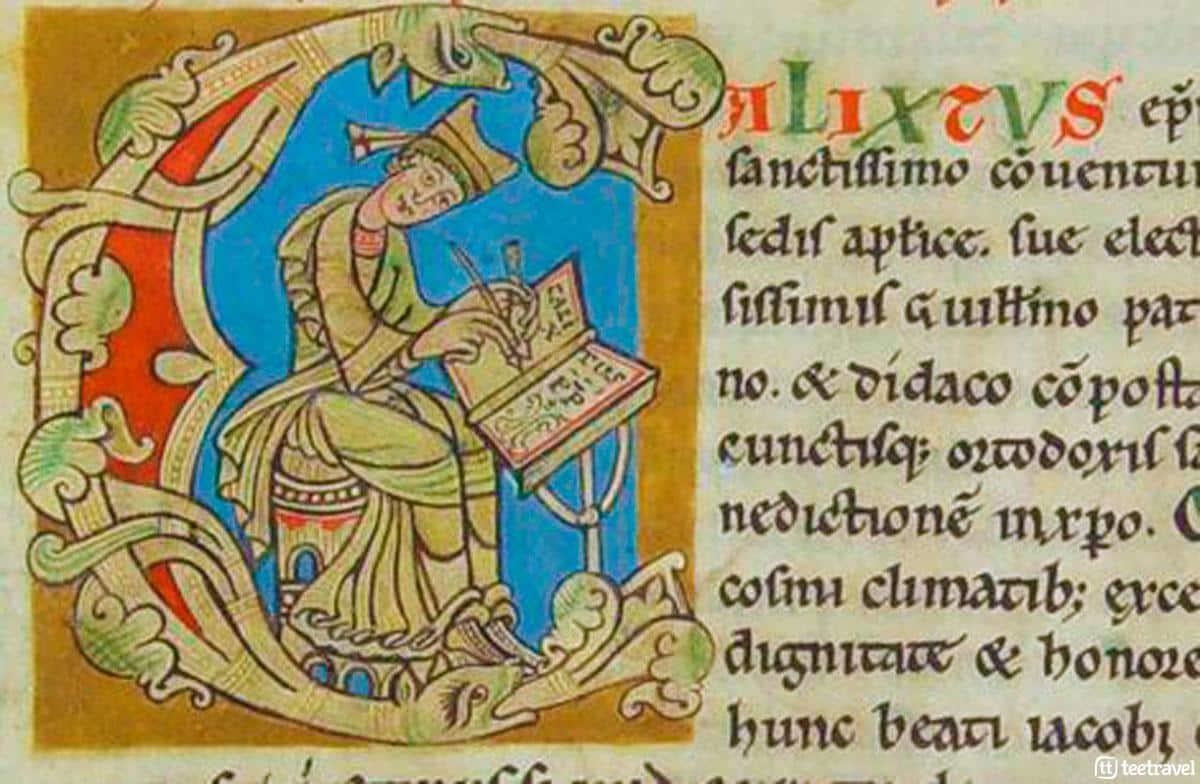 CALIXTVS ep̄
sanctissimo cōuentu
sedis aplice. sue elect
sissimis Guillmo pat
no. & didaco cōpost
cunctisq; ortodoxis
nedictionē in xp̄o.
cosmi climatib; exce
dignitate & honore
hunc beati iacobi
teetravel